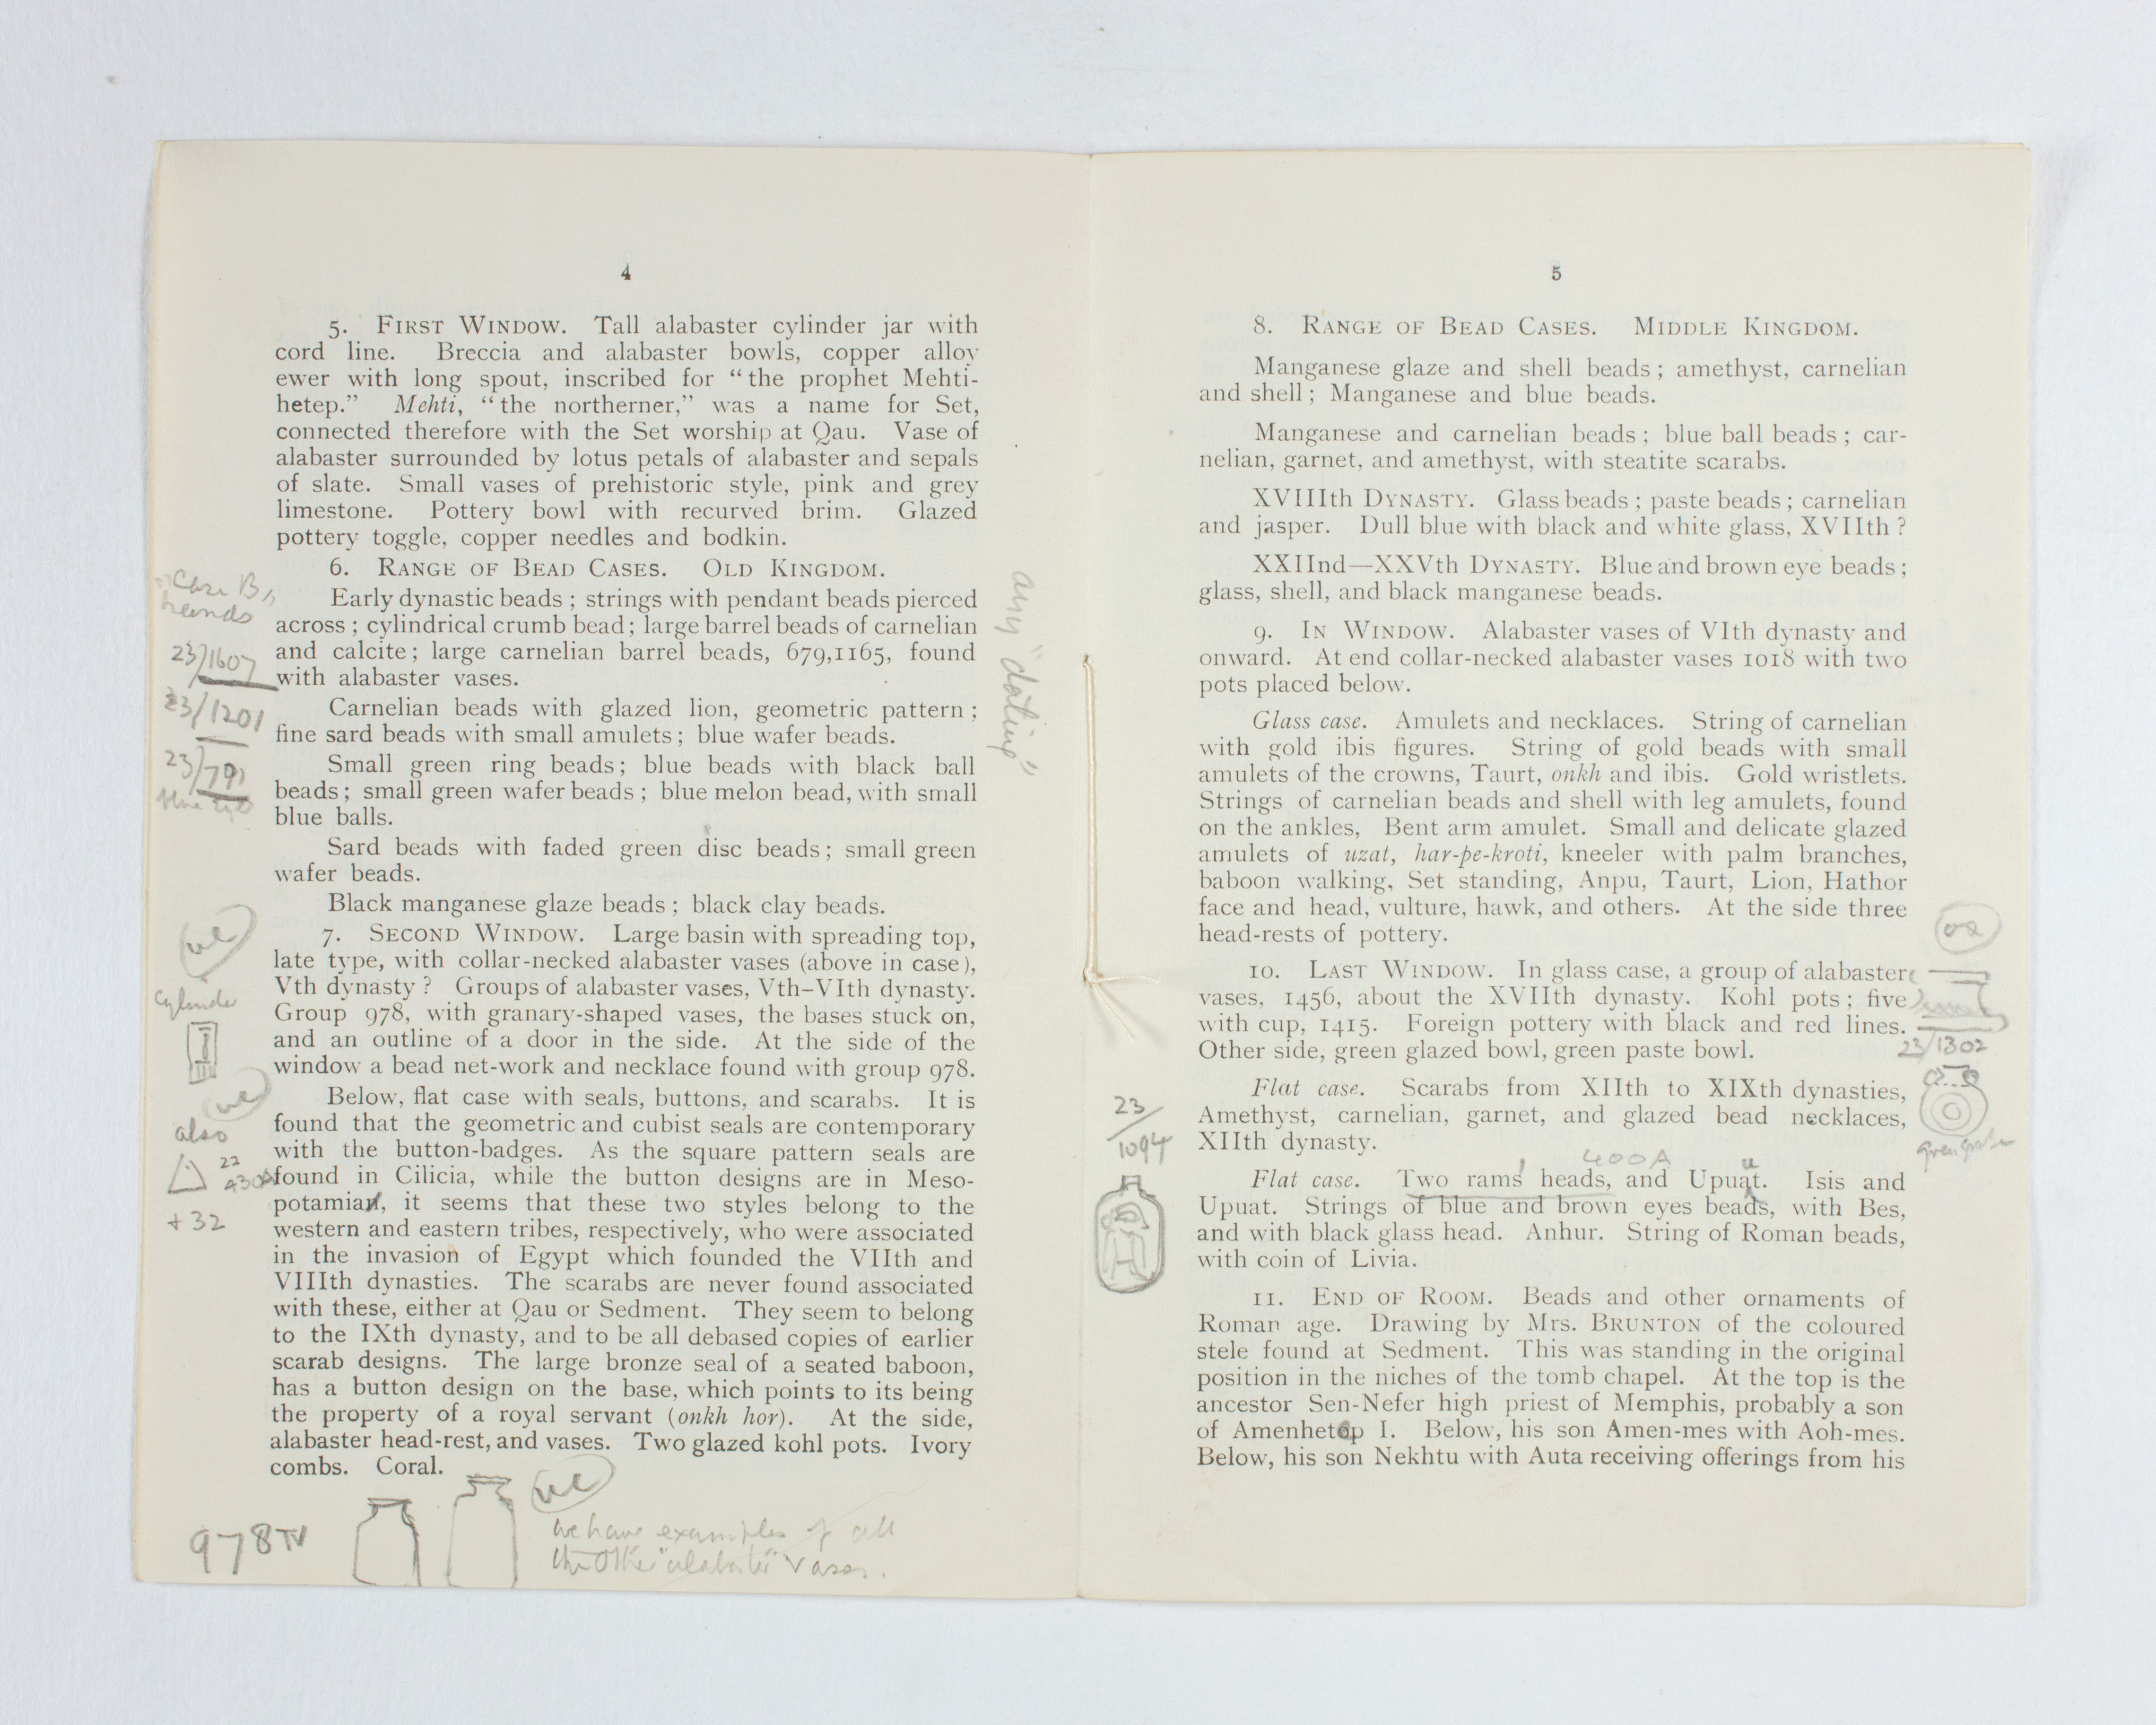 4
5. FIRST WINDOW. Tall alabaster cylinder jar with
cord line. Breccia and alabaster bowls, copper alloy
ewer with long spout, inscribed for “the prophet Mehti-
hetep.” Mehti, “the northerner,” was a name for Set,
connected therefore with the Set worship at Qau. Vase of
alabaster surrounded by lotus petals of alabaster and sepals
of slate. Small vases of prehistoric style, pink and grey
limestone. Pottery bowl with recurved brim. Glazed
pottery toggle, copper needles and bodkin.
6. RANGE OF BEAD CASES. OLD KINGDOM.
Early dynastic beads; strings with pendant beads pierced
across; cylindrical crumb bead; large barrel beads of carnelian
and calcite; large carnelian barrel beads, 679,1165, found
with alabaster vases.
Carnelian beads with glazed lion, geometric pattern;
fine sard beads with small amulets; blue wafer beads.
Small green ring beads; blue beads with black ball
beads; small green wafer beads; blue melon bead, with small
blue balls.
Sard beads with faded green disc beads; small green
wafer beads.
Black manganese glaze beads; black clay beads.
7. SECOND WINDOW. Large basin with spreading top,
late type, with collar-necked alabaster vases (above in case),
Vth dynasty? Groups of alabaster vases, Vth–VIth dynasty.
Group 978, with granary-shaped vases, the bases stuck on,
and an outline of a door in the side. At the side of the
window a bead net-work and necklace found with group 978.
Below, flat case with seals, buttons, and scarabs. It is
found that the geometric and cubist seals are contemporary
with the button-badges. As the square pattern seals are
found in Cilicia, while the button designs are in Meso-
potamian, it seems that these two styles belong to the
western and eastern tribes, respectively, who were associated
in the invasion of Egypt which founded the VIIth and
VIIIth dynasties. The scarabs are never found associated
with these, either at Qau or Sedment. They seem to belong
to the IXth dynasty, and to be all debased copies of earlier
scarab designs. The large bronze seal of a seated baboon,
has a button design on the base, which points to its being
the property of a royal servant (onkh hor). At the side,
alabaster head-rest, and vases. Two glazed kohl pots. Ivory
combs. Coral.
Case B,
23/1607
23/1201
23/791
Cylinder
also
22
430
+32
any "dating"
978
we have examples of all
the other "alabaster" vases.
5
8. RANGE OF BEAD CASES. MIDDLE KINGDOM.
Manganese glaze and shell beads; amethyst, carnelian
and shell; Manganese and blue beads.
Manganese and carnelian beads; blue ball beads; car-
nelian, garnet, and amethyst, with steatite scarabs.
XVIIIth DYNASTY. Glass beads; paste beads; carnelian
and jasper. Dull blue with black and white glass, XVIIth?
XXIInd—XXVth DYNASTY. Blue and brown eye beads;
glass, shell, and black manganese beads.
9. IN WINDOW. Alabaster vases of VIth dynasty and
onward. At end collar-necked alabaster vases 1018 with two
pots placed below.
Glass case. Amulets and necklaces. String of carnelian
with gold ibis figures. String of gold beads with small
amulets of the crowns, Taurt, onkh and ibis. Gold wristlets.
Strings of carnelian beads and shell with leg amulets, found
on the ankles, Bent arm amulet. Small and delicate glazed
amulets of uzat, har-pe-kroti, kneeler with palm branches,
baboon walking, Set standing, Anpu, Taurt, Lion, Hathor
face and head, vulture, hawk, and others. At the side three
head-rests of pottery.
10. LAST WINDOW. In glass case, a group of alabaster
vases, 1456, about the XVIIth dynasty. Kohl pots; five
with cup, 1415. Foreign pottery with black and red lines.
Other side, green glazed bowl, green paste bowl.
Flat case. Scarabs from XIIth to XIXth dynasties,
Amethyst, carnelian, garnet, and glazed bead necklaces,
XIIth dynasty.
400A
Flat case. Two rams' heads, and Upuaut. Isis and
Upuat. Strings of blue and brown eyes beads, with Bes,
and with black glass head. Anhur. String of Roman beads,
with coin of Livia.
11. END OF ROOM. Beads and other ornaments of
Roman age. Drawing by Mrs. BRUNTON of the coloured
stele found at Sedment. This was standing in the original
position in the niches of the tomb chapel. At the top is the
ancestor Sen-Nefer high priest of Memphis, probably a son
of Amenhetep I. Below, his son Amen-mes with Aoh-mes.
Below, his son Nekhtu with Auta receiving offerings from his
23/1302
23/1094